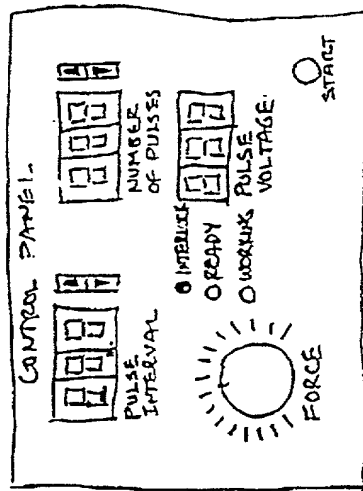 CONTROL PANEL
PULSE
INTERVAL
NUMBER
OF PULSES
FORCE
INTERLOCK
READY
WORKING
PULSE
VOLTAGE
START